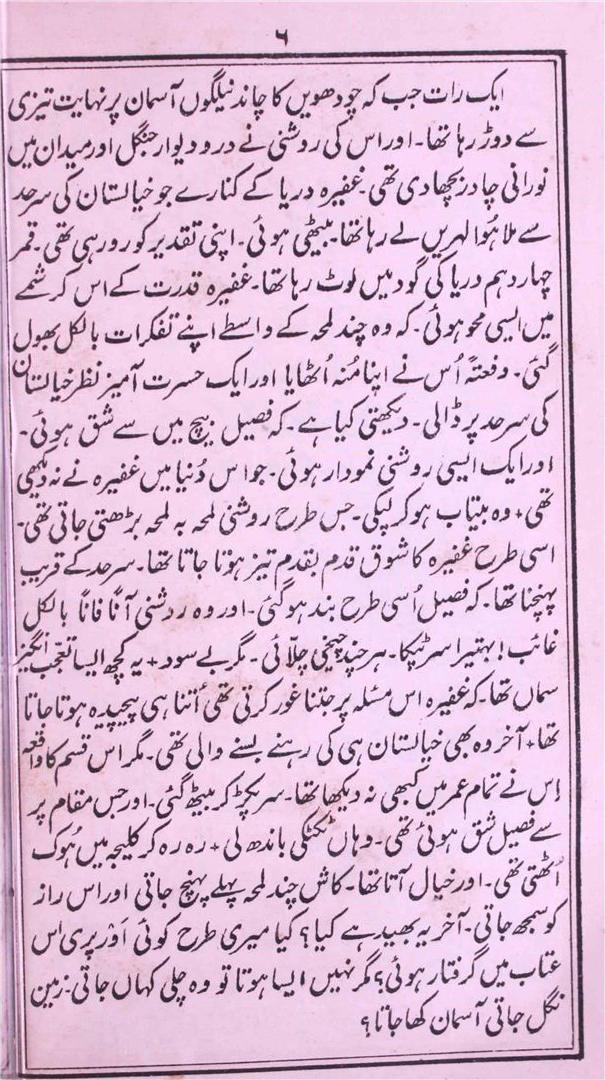 ۶
ایک رات جب کہ چودھویں کا چاند نیلگوں آسمان پر نہایت تیزی
سے دوڑ رہا تھا۔ اور اس کی روشنی نے درو دیوار جنگل اور میدان میں
نورانی چادر بچھا دی تھی۔ عفیرہ دریا کے کنارے جو خیالستان کی سرحد
سے ملا ہُوا لہریں لے رہا تھا۔ بیٹھی ہوئی۔ اپنی تقدیر کو رو رہی تھی۔ قمر
چہاردہم دریا کی گود میں لوٹ رہا تھا۔ عفیرہ قدرت کے اس کرشمے
میں ایسی محو ہوئی۔ کہ وہ چند لمحہ کے واسطے اپنے تفکرات بالکل بھول
گئی۔ دفعتہً اُس نے اپنا مُنہ اُٹھایا اور ایک حسرت آمیز نظر خیالستان
کی سرحد پر ڈالی۔ دیکھتی کیا ہے۔ کہ فصیل بیچ میں سے شق ہوئی۔
اور ایک ایسی روشنی نمودار ہوئی۔ جو اس دُنیا میں عفیرہ نے نہ دیکھی
تھی + وہ بیتاب ہو کر لپکی۔ جس طرح روشنی لمحہ بہ لمحہ بڑھتی جاتی تھی۔
اسی طرح عفیرہ کا شوق قدم بقدم تیز ہوتا جاتا تھا۔ سرحد کے قریب
پہنچنا تھا۔ کہ فصیل اُسی طرح بند ہو گئی۔ اور وہ روشنی آناً فاناً بالکل
غائب! بہتیرا سر پٹکا۔ ہر چند چیخی چلّائی۔ مگر بے سود + یہ کچھ ایسا تعجّب انگیز
سماں تھا۔ کہ عفیرہ اس مسئلہ پر جتنا غور کرتی تھی اُتنا ہی پیچیدہ ہوتا جاتا
تھا + آخر وہ بھی خیالستان ہی کی رہنے بسنے والی تھی۔ مگر اس قسم کا واقعہ
اِس نے تمام عمر میں کبھی نہ دیکھا تھا۔ سر پکڑ کر بیٹھ گئی۔ اور جس مقام پر
سے فصیل شق ہوئی تھی۔ وہاں ٹکٹکی باندھ لی + رہ رہ کر کلیجہ میں ہُوک
اُٹھتی تھی۔ اور خیال آتا تھا۔ کاش چند لمحہ پہلے پہنچ جاتی اور اس راز
کو سمجھ جاتی۔ آخر یہ بھید ہے کیا؟ کیا میری طرح کوئی اَوْر پری اس
عتاب میں گرفتار ہوئی؟ گر نہیں ایسا ہوتا تو وہ چلی کہاں جاتی۔ زمین
نگل جاتی آسمان کھا جاتا؟